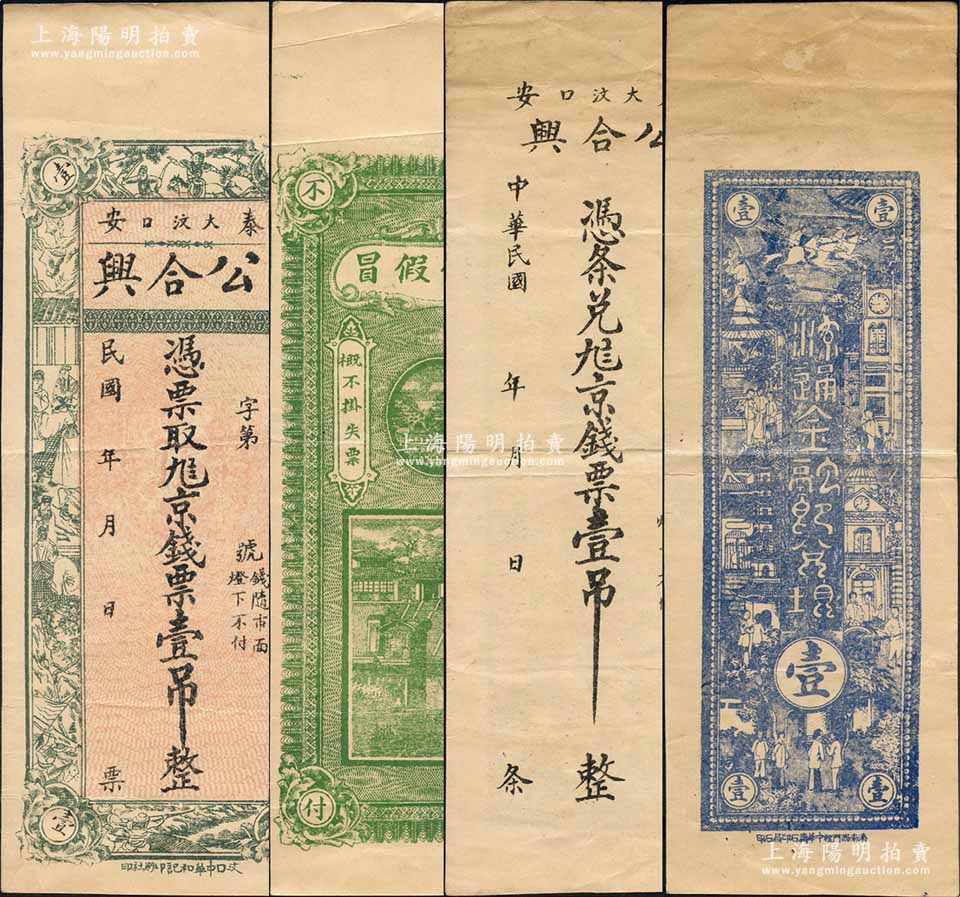 上海陽明拍賣
www.yangmingauction.com
壹
泰大汶口安
公合興
字第
號
錢隨市面
燈下不付
憑票取尪京錢票壹吊整
民國 年 月 日
票
壹
不
假冒
概不掛失票
付
大汶口安
公合興
憑条兑尪京錢票壹吊整
中華民國 年 月 日
条
壹
壹
壹
壹
壹
上海陽明拍賣
www.yangmingauction.com
上海陽明拍賣
www.yangmingauction.com